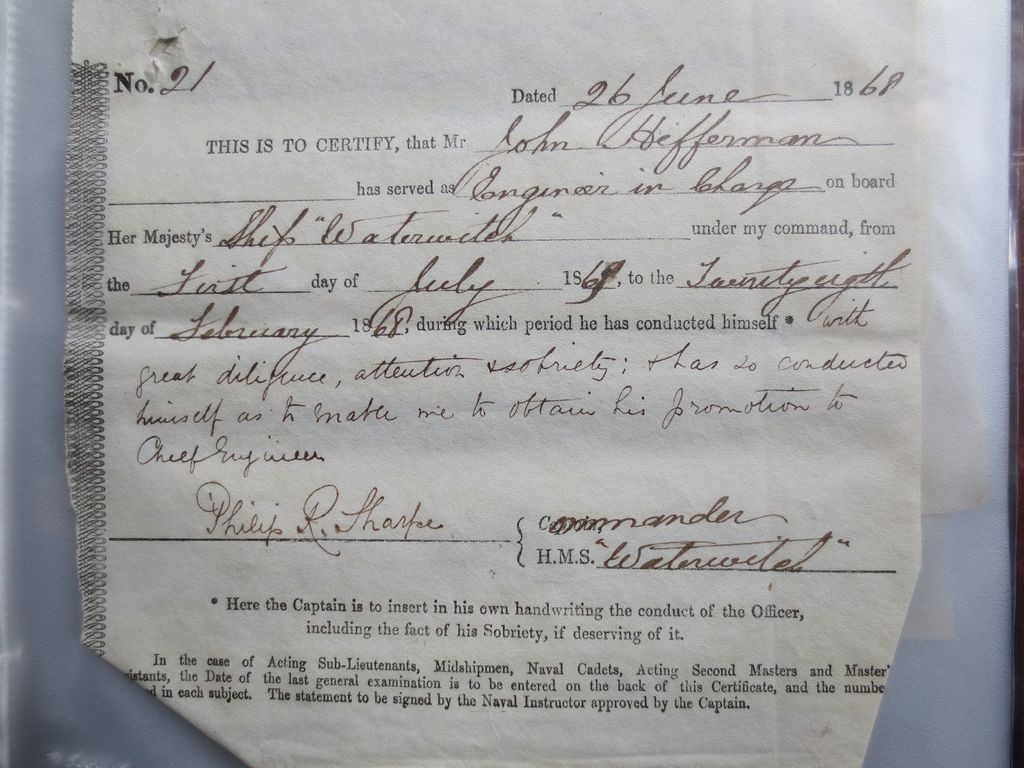 No. 21
Dated 26 June 1868
THIS IS TO CERTIFY, that Mr John Hefferman
has served as Engineer in Charge on board
Her Majesty's Ship "Waterwitch" under my command, from
the First day of July 1867, to the Twentyeigth
day of February 1868, during which period he has conducted himself * with
great diligence, attention & sobriety; & has so conducted
himself as to enable me to obtain his promotion to
Chief Engineer
Philip R. Sharpe { Commander
H.M.S. "Waterwitch"
* Here the Captain is to insert in his own handwriting the conduct of the Officer,
including the fact of his Sobriety, if deserving of it.
In the case of Acting Sub-Lieutenants, Midshipmen, Naval Cadets, Acting Second Masters and Master'
istants, the Date of the last general examination is to be entered on the back of this Certificate, and the numbe
d in each subject. The statement to be signed by the Naval Instructor approved by the Captain.